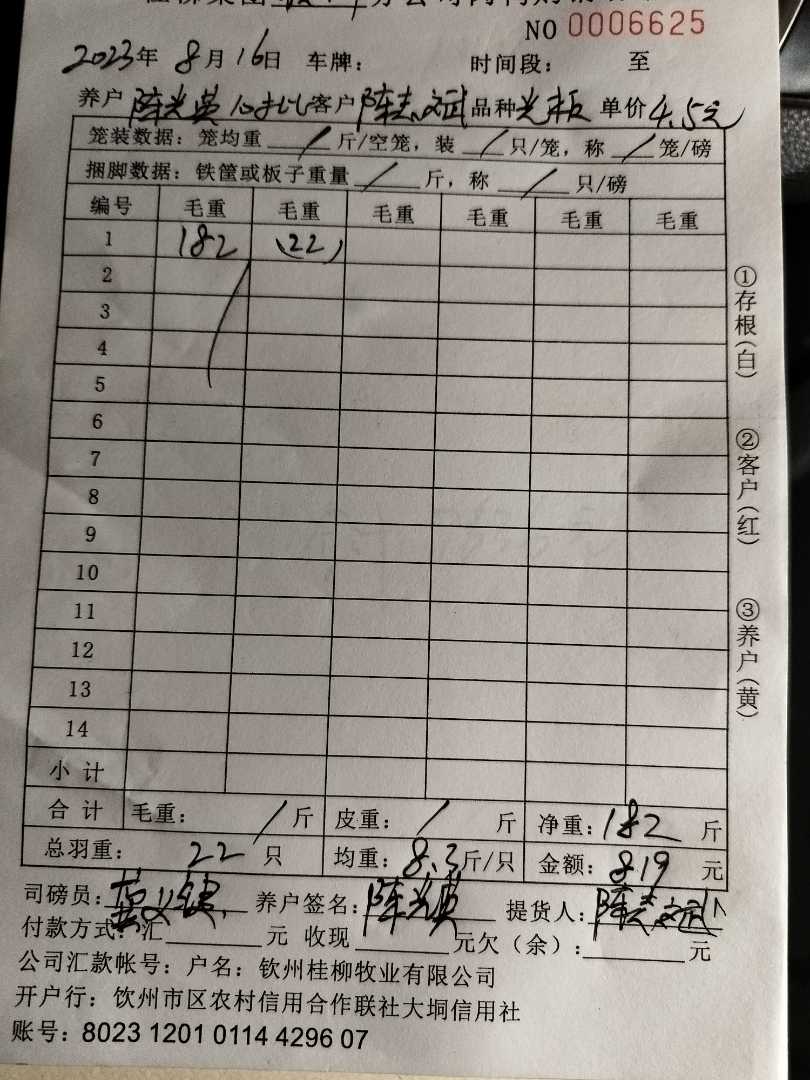 NO 0006625
2023年 8月16日 车牌: 时间段: 至
养户 陈光英 客户 陈志斌 品种 光板 单价 4.5元
笼装数据:笼均重 / 斤/空笼,装 / 只/笼,称 / 笼/磅
捆脚数据:铁筐或板子重量 / 斤,称 / 只/磅
编号 毛重 毛重 毛重 毛重 毛重 毛重
1 182 (22)
2
3
4
5
6
7
8
9
10
11
12
13
14
小计
合计 毛重: / 斤 皮重: / 斤 净重:182 斤
总羽重: 22 只 均重:8.3斤/只 金额:819 元
①存根(白)
②客户(红)
③养户(黄)
司磅员: 养户签名:陈光英 提货人:陈志斌
付款方式:汇 元 收现 元欠(余): 元
公司汇款帐号:户名:钦州桂柳牧业有限公司
开户行:钦州市区农村信用合作联社大垌信用社
账号:8023 1201 0114 4296 07